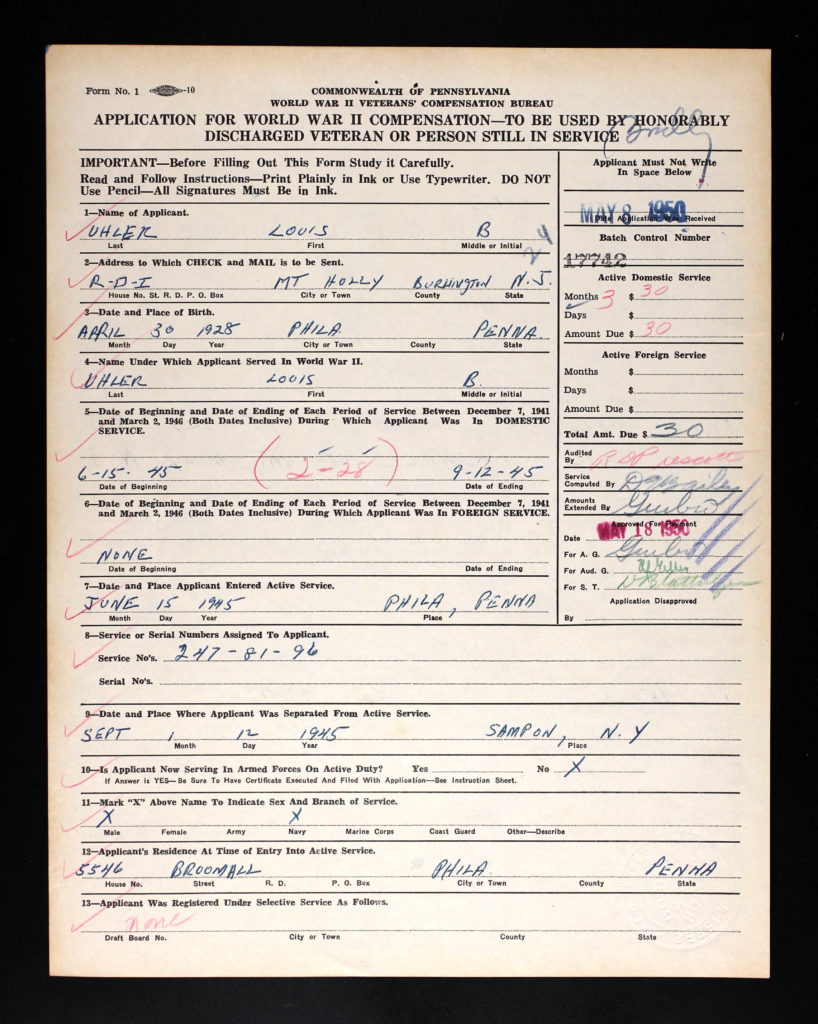 Form No. 1 -10
COMMONWEALTH OF PENNSYLVANIA
WORLD WAR II VETERANS' COMPENSATION BUREAU
APPLICATION FOR WORLD WAR II COMPENSATION—TO BE USED BY HONORABLY
DISCHARGED VETERAN OR PERSON STILL IN SERVICE
IMPORTANT—Before Filling Out This Form Study it Carefully.
Read and Follow Instructions—Print Plainly in Ink or Use Typewriter. DO NOT
Use Pencil—All Signatures Must Be in Ink.
1—Name of Applicant.
UHLER LOUIS B
Last First Middle or Initial
24
2—Address to Which CHECK and MAIL is to be Sent.
R-D-1 MT HOLLY BURLINGTON N.J.
House No. St. R. D. P. O. Box City or Town County State
3—Date and Place of Birth.
APRIL 30 1928 PHILA PENNA.
Month Day Year City or Town County State
4—Name Under Which Applicant Served In World War II.
UHLER LOUIS B.
Last First Middle or Initial
5—Date of Beginning and Date of Ending of Each Period of Service Between December 7, 1941
and March 2, 1946 (Both Dates Inclusive) During Which Applicant Was In DOMESTIC
SERVICE.
6-15-45 (2-28) 9-12-45
Date of Beginning Date of Ending
6—Date of Beginning and Date of Ending of Each Period of Service Between December 7, 1941
and March 2, 1946 (Both Dates Inclusive) During Which Applicant Was In FOREIGN SERVICE.
NONE
Date of Beginning Date of Ending
7—Date and Place Applicant Entered Active Service.
JUNE 15 1945 PHILA, PENNA
Month Day Year Place
Applicant Must Not Write
In Space Below
MAY 8 1950
Date Application Was Received
Batch Control Number
17742
Active Domestic Service
Months 3 $ 30
Days $
Amount Due $ 30
Active Foreign Service
Months $
Days $
Amount Due $
Total Amt. Due $ 30
Audited
By
Service
Computed By
Amounts
Extended By
Approved For Payment
Date MAY 18 1950
For A. G.
For Aud. G.
For S. T.
Application Disapproved
By
8—Service or Serial Numbers Assigned To Applicant.
Service No's. 247-81-96
Serial No's.
9—Date and Place Where Applicant Was Separated From Active Service.
SEPT 12 1945 SAMPON, N.Y
Month Day Year Place
10—Is Applicant Now Serving In Armed Forces On Active Duty? Yes No X
If Answer is YES—Be Sure To Have Certificate Executed And Filed With Application—See Instruction Sheet.
11—Mark "X" Above Name To Indicate Sex And Branch of Service.
X X
Male Female Army Navy Marine Corps Coast Guard Other—Describe
12—Applicant's Residence At Time of Entry Into Active Service.
5546 BROOMALL PHILA. PENNA
House No. Street R. D. P. O. Box City or Town County State
13—Applicant Was Registered Under Selective Service As Follows.
none
Draft Board No. City or Town County State